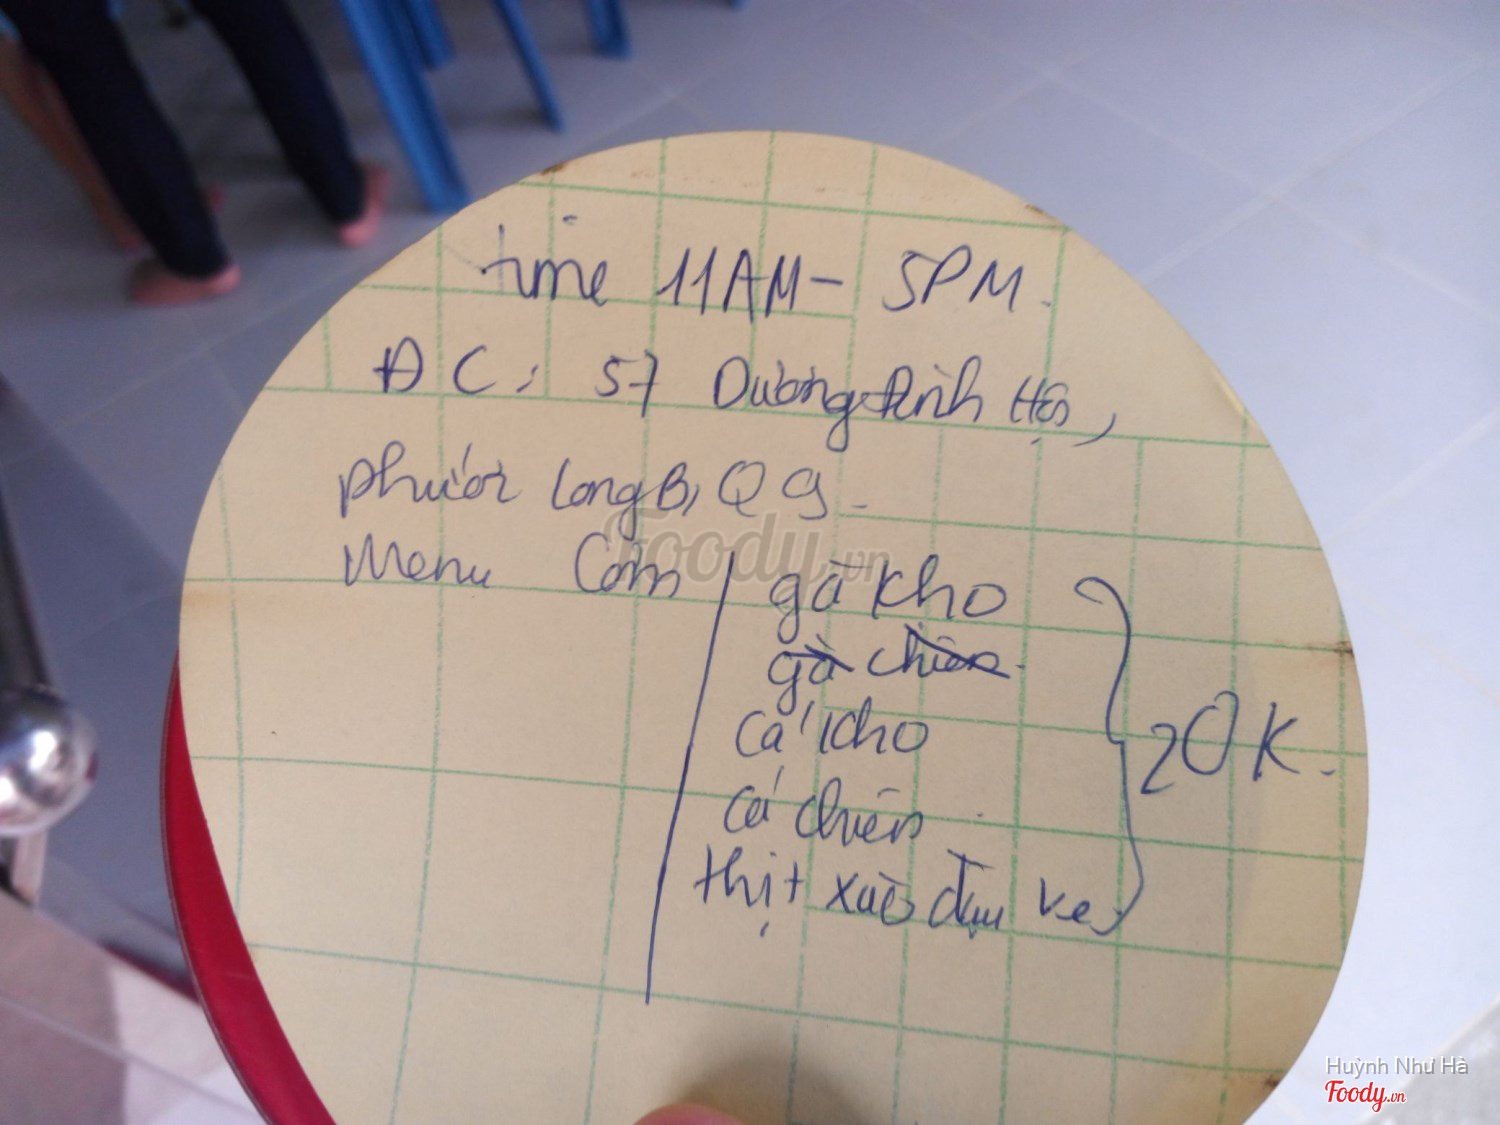 time 11AM - 5PM.
ĐC: 57 Dương Đình Hội,
phước Long B, Q9.
Menu Cơm
gà kho
gà chiên.
cá kho
cá chiên
thịt xào đậu ve
20K.
Foody.vn
Huỳnh Như Hà
Foody.vn